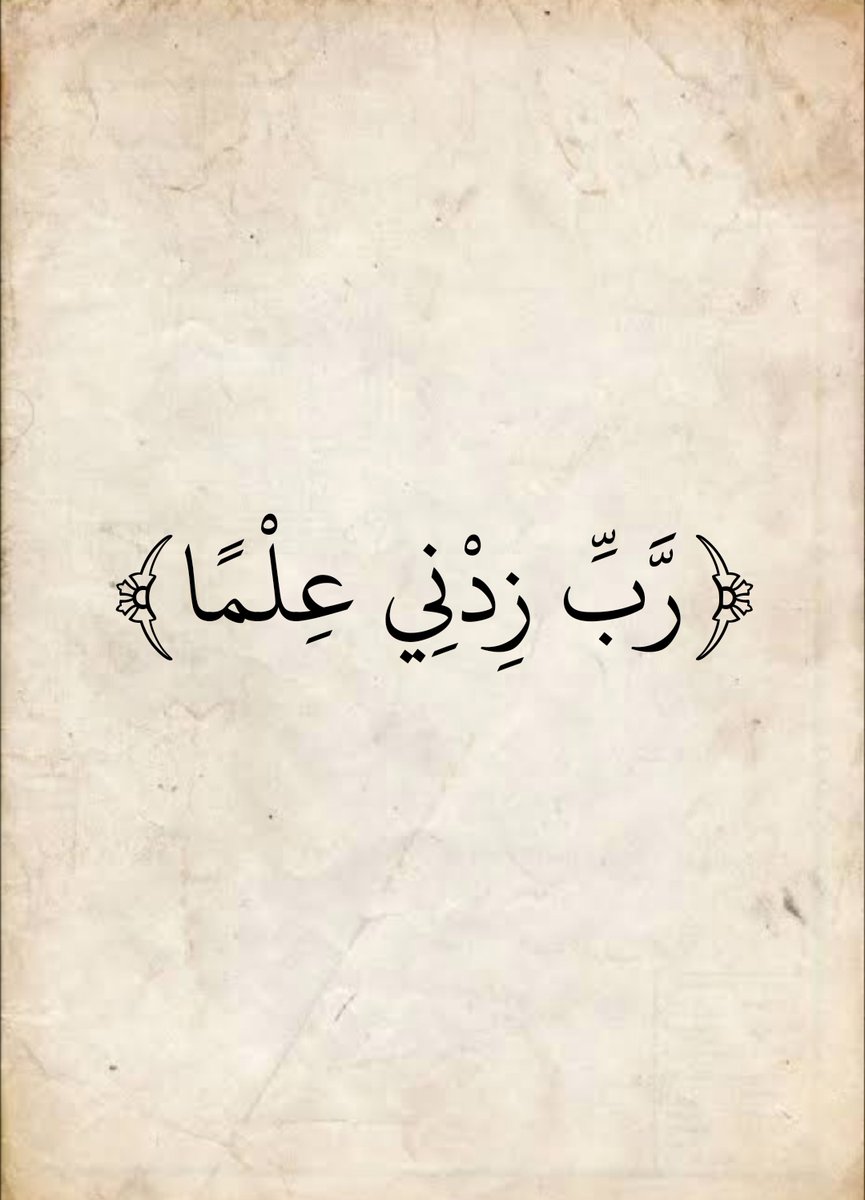 ﴿رَّبِّ زِدْنِي عِلْمًا﴾